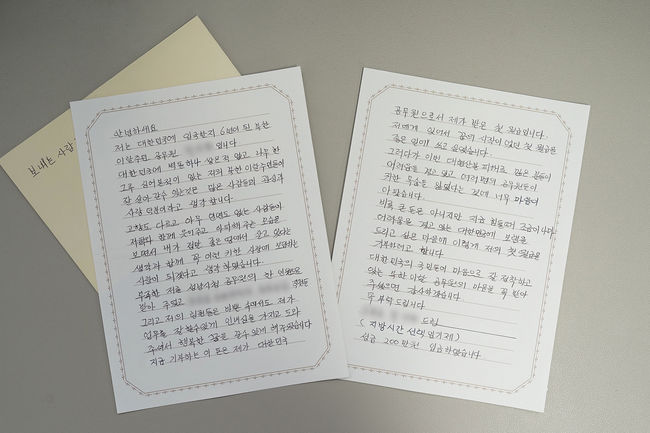 보내는 사람
안녕하세요
저는 대한민국에 입국한지 6년이 된 북한
이탈주민 공무원 입니다.
대한민국에 벽돌 하나 쌓은적 없고 나무 한
그루 심어본적이 없는 저와 북한 이탈주민들이
잘 살아 갈수 있는것은 많은 사람들의 관심과
사랑 덕분이라고 생각 합니다.
고향도 다르고 아무 연고도 없는 사람들이
저희와 함께 웃어주고 아파해 주는 모습을
보면서 내가 정말 좋은 땅에서 살고 있다는
생각과 함께 꼭 이런 귀한 사랑에 보답하는
사람이 되겠다고 생각 하였습니다.
부족한 저를 성남시청 공무원의 한 일원으로
받아 주었고
그리고 저의 팀원들은 바쁜 와중에도 제가
업무를 잘 할수 있게 인내심을 가지고 도와
주셔서 행복한 꿈을 꿀수 있게 해주셨습니다
지금 기부하는 이 돈은 제가 대한민국
공무원으로서 제가 받은 첫 월급입니다.
저에게 있어서 꿈의 시작이 었던 첫 월급을
좋은 일에 쓰고 싶었습니다.
그러다가 이번 대형산불 피해로 많은 분들이
어려움을 겪고 있고 여러명의 공무원들이
귀한 목숨을 잃었다는 것에 너무 마음이
아팠습니다.
비록 큰 돈은 아니지만 지금 힘들때 조금이나마
어려움을 겪고 있는 대한민국에 보탬을
드리고 싶은 마음에 이렇게 저의 첫 월급을
기부하려고 합니다.
대한민국의 국민들이 마음으로 잘 정착하고
있는 북한 이탈 공무원의 마음을 꼭 받아
주셨으면 감사하겠습니다.
꼭 부탁 드립니다.
드림
(지방시간 선택 임기제)
성금 200만원 입금하였습니다